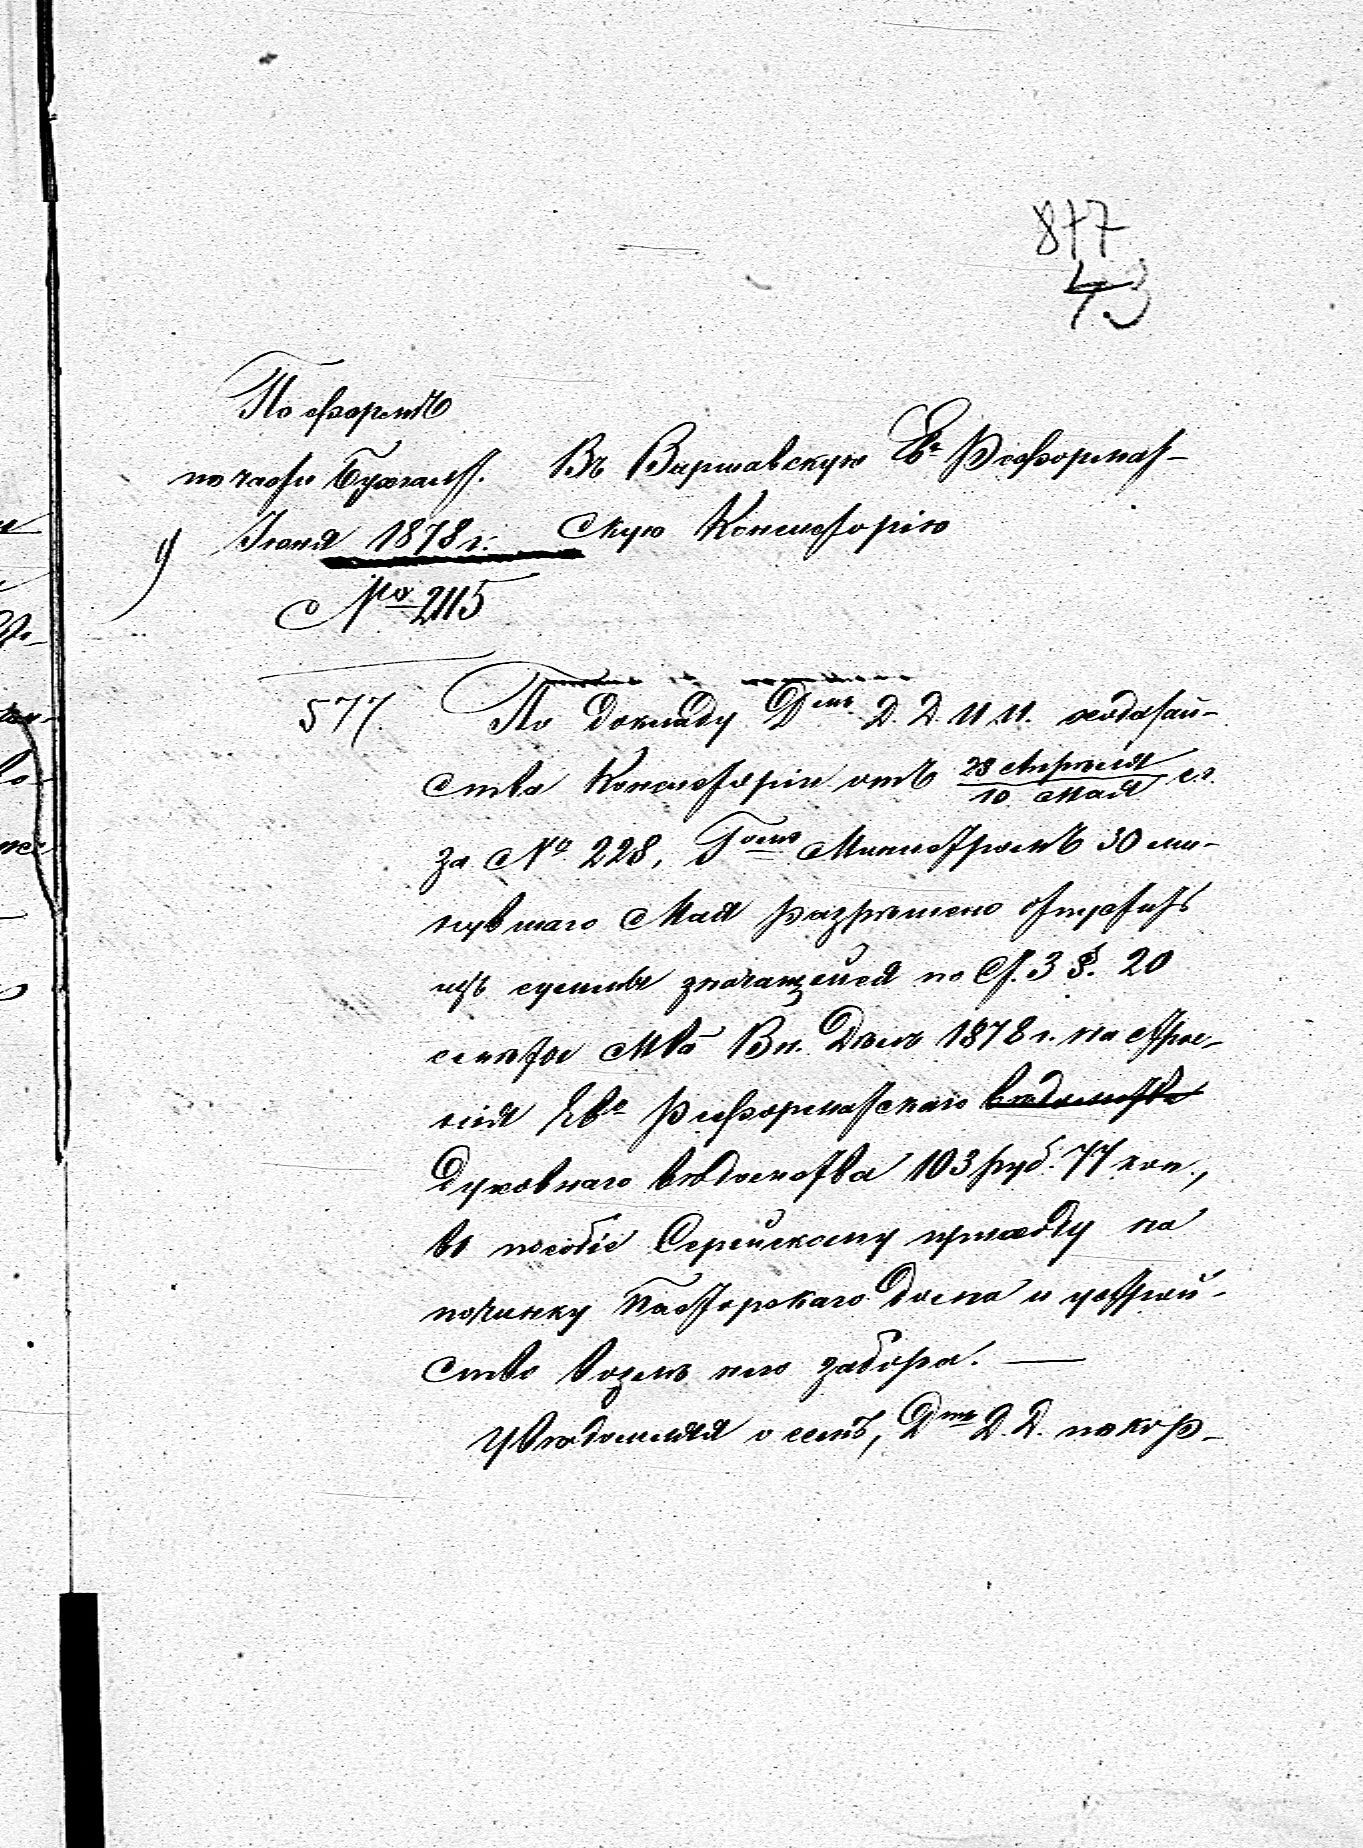 817
43
По формѣ
по части Бухгалт. Въ Варшавскую Ев. Реформат-
9 Іюня 1878 г. скую Консисторію
№ 2115
577. По докладу Д-мъ Д. Д. И. И. ходатай-
ства Консисторіи отъ 28 Апрѣля / 10 Мая с.г.
за № 228, Г-омъ Министромъ 30 ми-
нувшаго Мая разрѣшено отпустить
изъ суммы значащейся по ст. 3 §. 20
смѣты М-ва Вн. Дѣлъ 1878 г. на строе-
нія Ев. реформатскаго вѣдомства
духовнаго вѣдомства 103 руб. 77 коп.,
въ пособіе Серейскому приходу на
починку Пасторскаго дома и устрой-
ство возлѣ него забора. —
Увѣдомляя о семъ, Д-тъ Д. Д. покор-